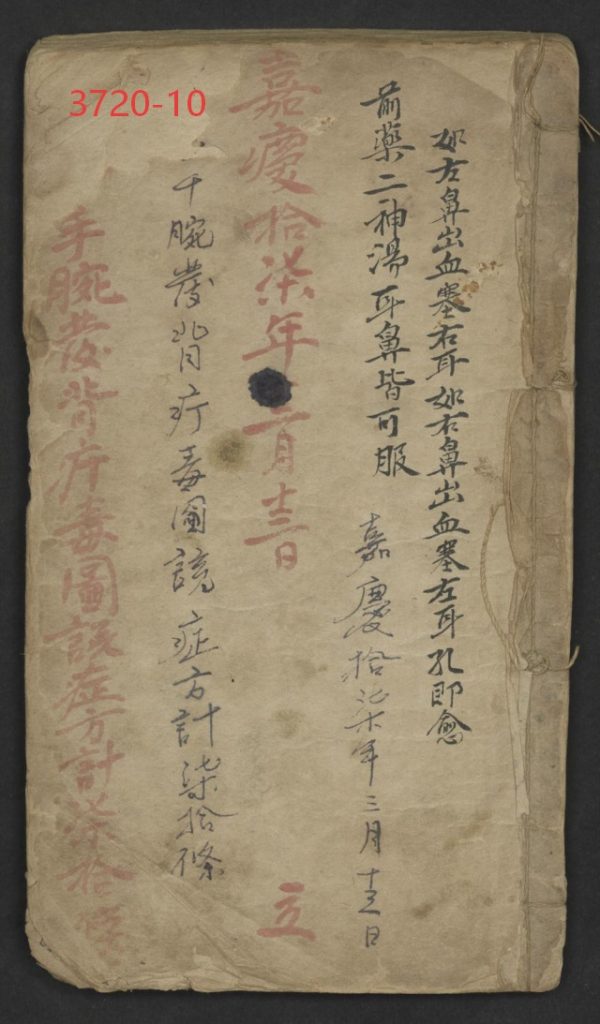 3720-10
如左鼻出血塞右耳如右鼻出血塞左耳孔即愈
前藥二神湯耳鼻皆可服
嘉慶拾柒年三月十三日
嘉慶拾柒年三月十三日
立
手腕發背疔毒圖 症方計柒拾條
手腕發背疔毒圖 症方計柒拾條